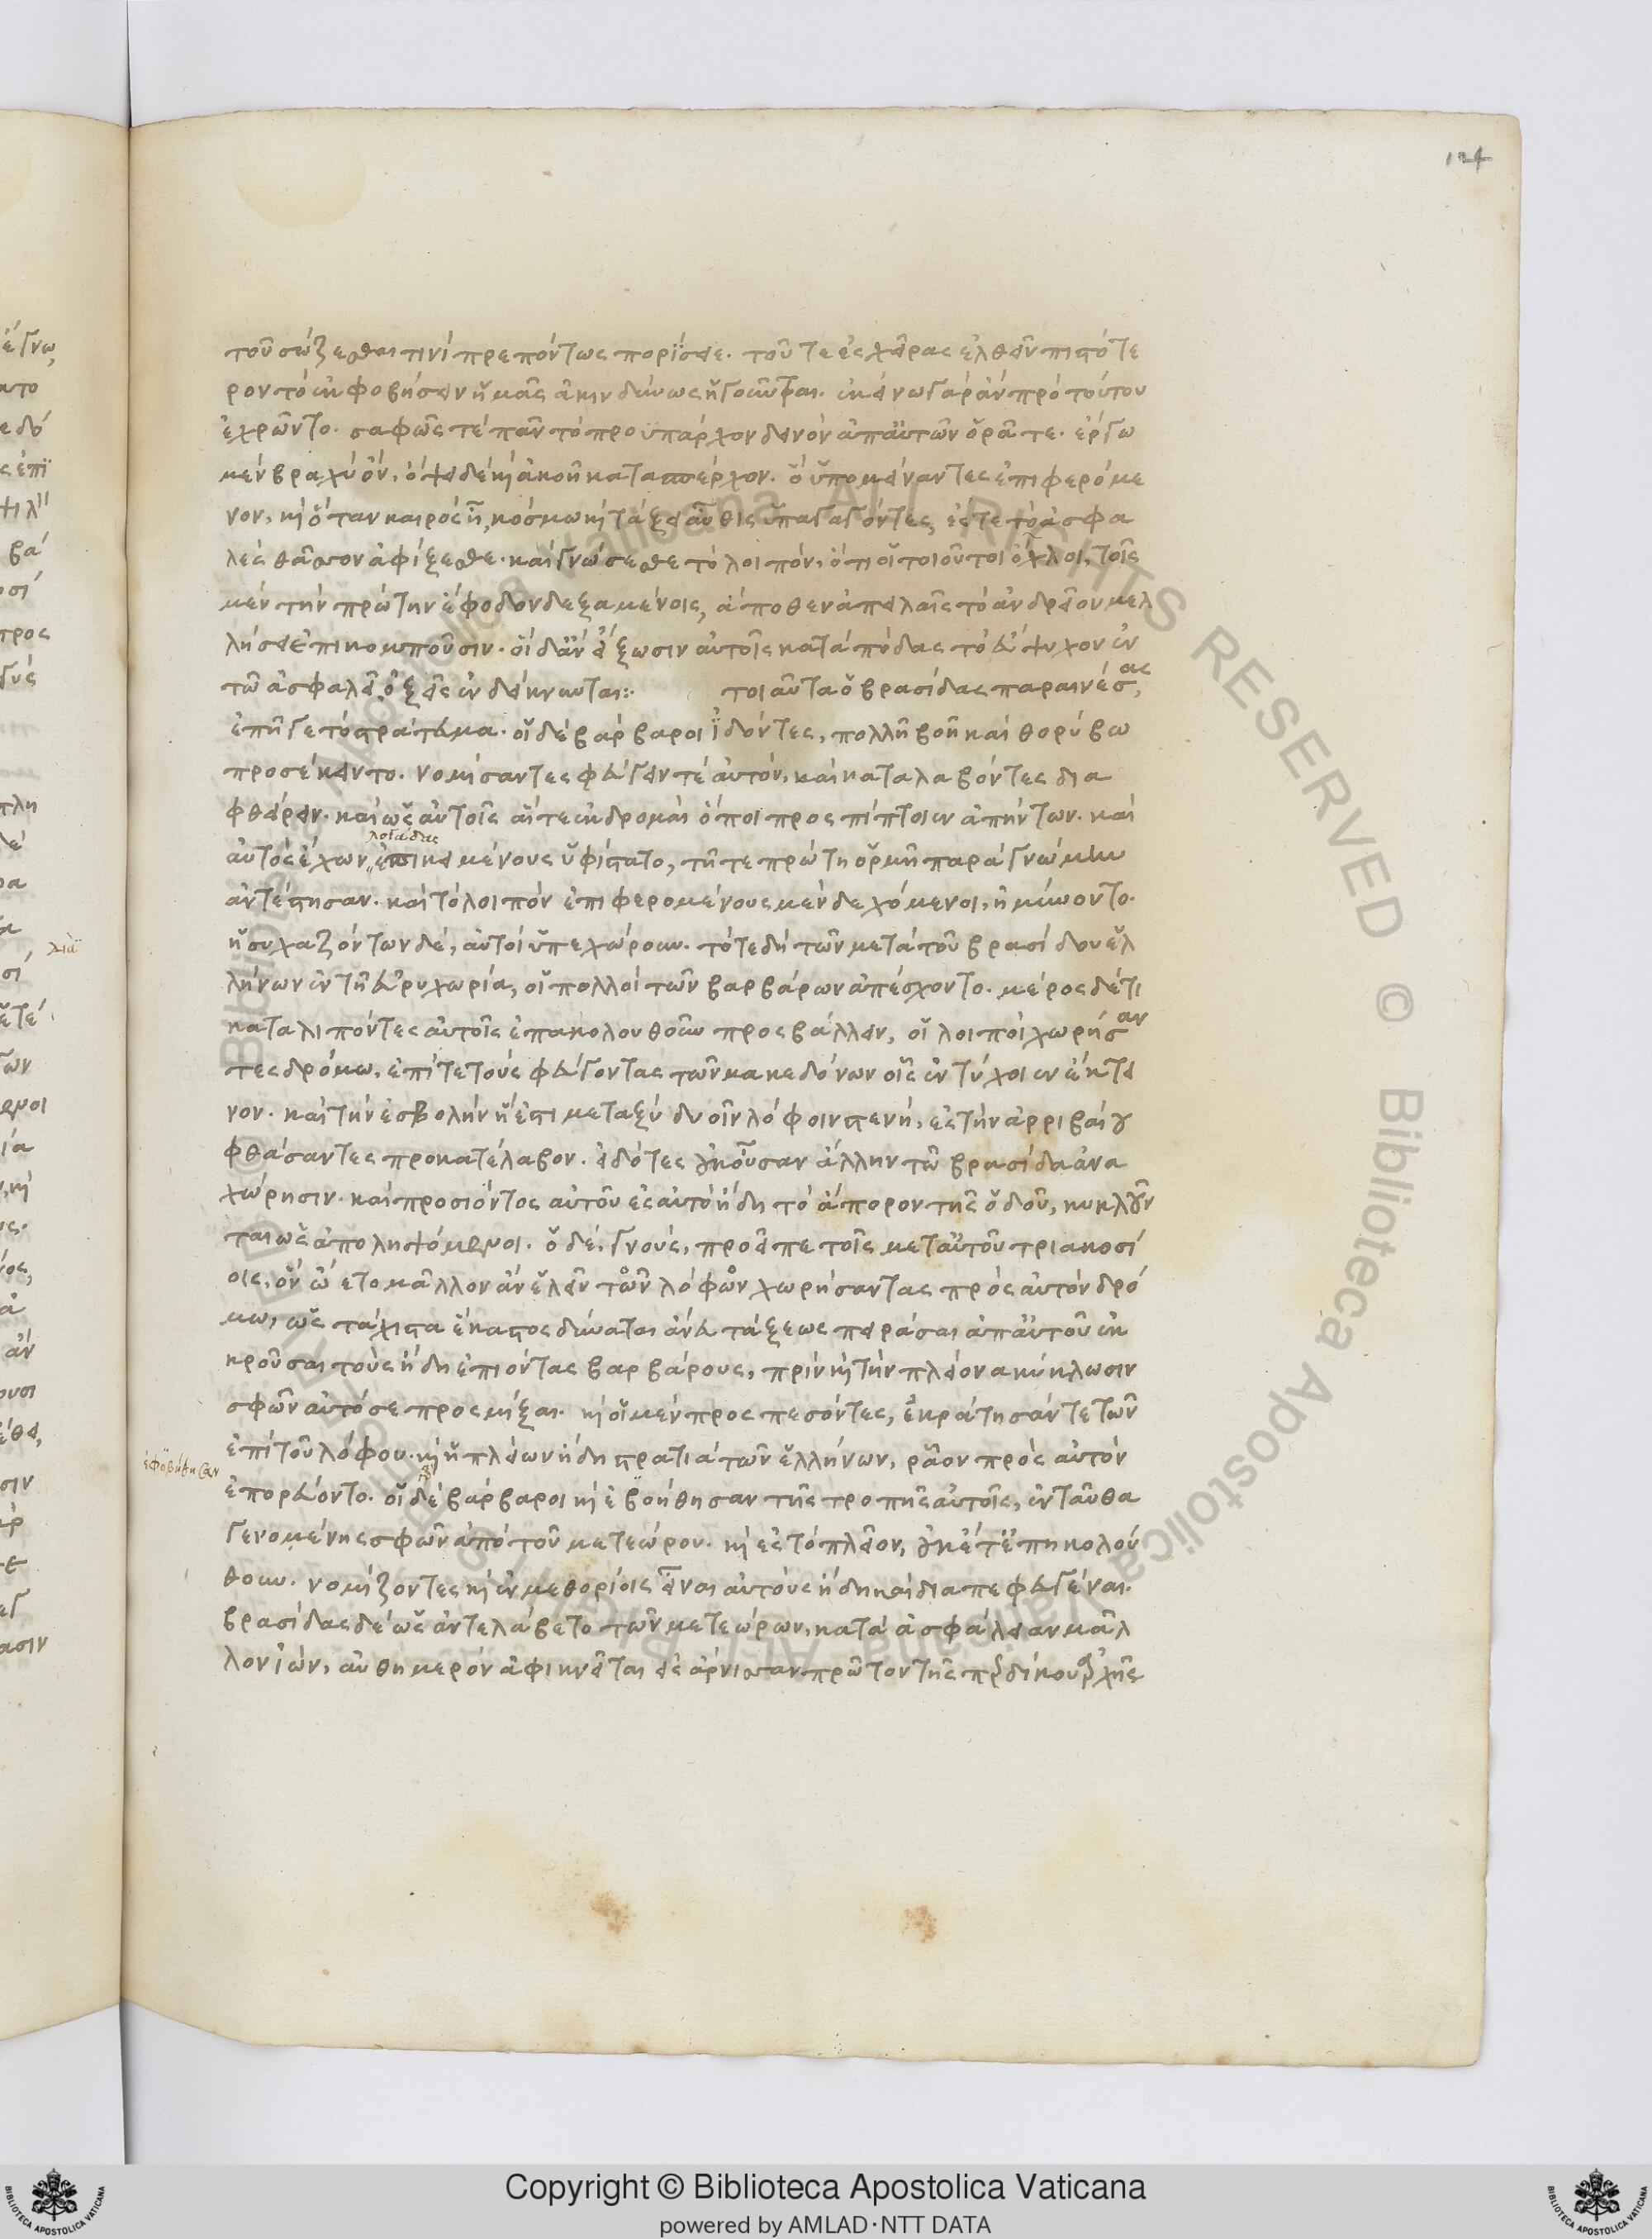 124
τοῦ σώζεσθαι τινὶ πρεπόντως πορίσειε. τοῦ τε ἐς χεῖρας ἐλθεῖν πιστότε
ρον τὸ ἐκφοβήσειν ἡμᾶς ἀκινδύνως ἡγοῦνται. ἐκείνω γὰρ ἂν πρὸ τούτου
ἐχρῶντο. σαφῶς τὲ πᾶν τὸ προϋπάρχον δεινὸν ἀπ' αὐτῶν ὁρᾶτε. ἔργω
μὲν βραχὺ ὂν, ὄψει δὲ καὶ ἀκοῆ κατασπέρχον. ὃ ὑπομείναντες ἐπιφερόμε
νον, καὶ ὅταν καιρὸς ῆ, κόσμω καὶ τάξει αὖθις ὑπαγαγόντες, ἔς τε τὸ ἀσφα
λὲς θᾶσσον ἀφίξεσθε. καὶ γνώσεσθε τὸ λοιπὸν, ὅτι οἱ τοιοῦτοι ὄχλοι, τοῖς
μὲν τὴν πρώτην ἔφοδον δεξαμένοις, ἄποθεν ἀπειλαῖς τὸ ἀνδρεῖον μελ
λήσει ἐπικομποῦσιν. οἳ δ' ἂν εἴξωσιν αὐτοῖς κατὰ πόδας τὸ εὔψυχον ἐν
τῶ ἀσφαλεῖ ὀξεῖς ἐνδείκνυνται: τοιαῦτα ὁ βρασίδας παραινέσας,
ἐπῆγε τὸ στράτευμα. οἱ δὲ βάρβαροι ἰδόντες, πολλῆ βοῆ καὶ θορύβω
προσέκειντο. νομίσαντες φεύγειν τὲ αὐτὸν, καὶ καταλαβόντες δια
φθείρειν. καὶ ὡς αὐτοῖς αἵ τε ἐκδρομαὶ ὅποι προσπίπτοιεν ἀπήντων. καὶ
λογάδας
αὐτὸς ἔχων ἐπικειμένους ὑφίστατο, τῆ τε πρώτη ὁρμῆ παρὰ γνώμην
ἀντέστησαν. καὶ τὸ λοιπὸν ἐπιφερομένους μὲν δεχόμενοι, ἠμύνοντο.
ἡσυχαζόντων δὲ, αὐτοὶ ὑπεχώρουν. τότε δὴ τῶν μετὰ τοῦ βρασίδου ἑλ
λήνων ἐν τῆ εὐρυχωρία, οἱ πολλοὶ τῶν βαρβάρων ἀπέσχοντο. μέρος δέ τι
καταλιπόντες αὐτοῖς ἐπακολουθοῦν προσβάλλειν, οἱ λοιποὶ χωρήσαν
τες δρόμω, ἐπί τε τοὺς φεύγοντας τῶν μακεδόνων οἷς ἐντύχοιεν ἔκτει
νον. καὶ τὴν ἐσβολὴν ἥ ἐστι μεταξὺ δυοῖν λόφοιν στενὴ, ἐς τὴν ἀρριβαίου
φθάσαντες προκατέλαβον. εἰδότες οὐκ οὖσαν ἄλλην τῶ βρασίδα ἀνα
χώρησιν. καὶ προσιόντος αὐτοῦ ἐς αὐτὸ ἤδη τὸ ἄπορον τῆς ὁδοῦ, κυκλοῦν
ται ὡς ἀποληψόμενοι. ὁ δὲ, γνοὺς, προεῖπε τοῖς μετ' αὐτοῦ τριακοσί
οις, ὃν ὤετο μᾶλλον ἂν ἑλεῖν τῶν λόφων χωρήσαντας πρὸς αὐτὸν δρό
μω, ὡς τάχιστα ἕκαστος δύναται ἄνευ τάξεως πειράσαι ἀπ' αὐτοῦ ἐκ
κροῦσαι τοὺς ἤδη ἐπιόντας βαρβάρους, πρὶν καὶ τὴν πλείονα κύκλωσιν
σφῶν αὐτόσε προσμίξαι. καὶ οἱ μὲν προσπεσόντες, ἐκράτησάν τε τῶν
ἐπὶ τοῦ λόφου. καὶ ἡ πλείων ἤδη στρατιὰ τῶν ἑλλήνων, ρᾶον πρὸς αὐτὸν
ἐφοβήθησαν
ἐπορεύοντο. οἱ δὲ βάρβαροι καὶ ἐβοήθησαν τῆς τροπῆς αὐτοῖς, ἐνταῦθα
γενομένης σφῶν ἀπὸ τοῦ μετεώρου. καὶ ἐς τὸ πλεῖον, οὐκέτ' ἐπηκολού
θουν. νομίζοντες καὶ ἐν μεθορίοις εἶναι αὐτοὺς ἤδη καὶ διαπεφευγέναι.
βρασίδας δὲ ὡς ἀντελάβετο τῶν μετεώρων, κατὰ ἀσφάλειαν μᾶλ
λον ἰὼν, αὐθημερὸν ἀφικνεῖται ἐς ἄρνισσαν πρῶτον τῆς περδίκου ἀρχῆς
Copyright © Biblioteca Apostolica Vaticana
powered by AMLAD·NTT DATA